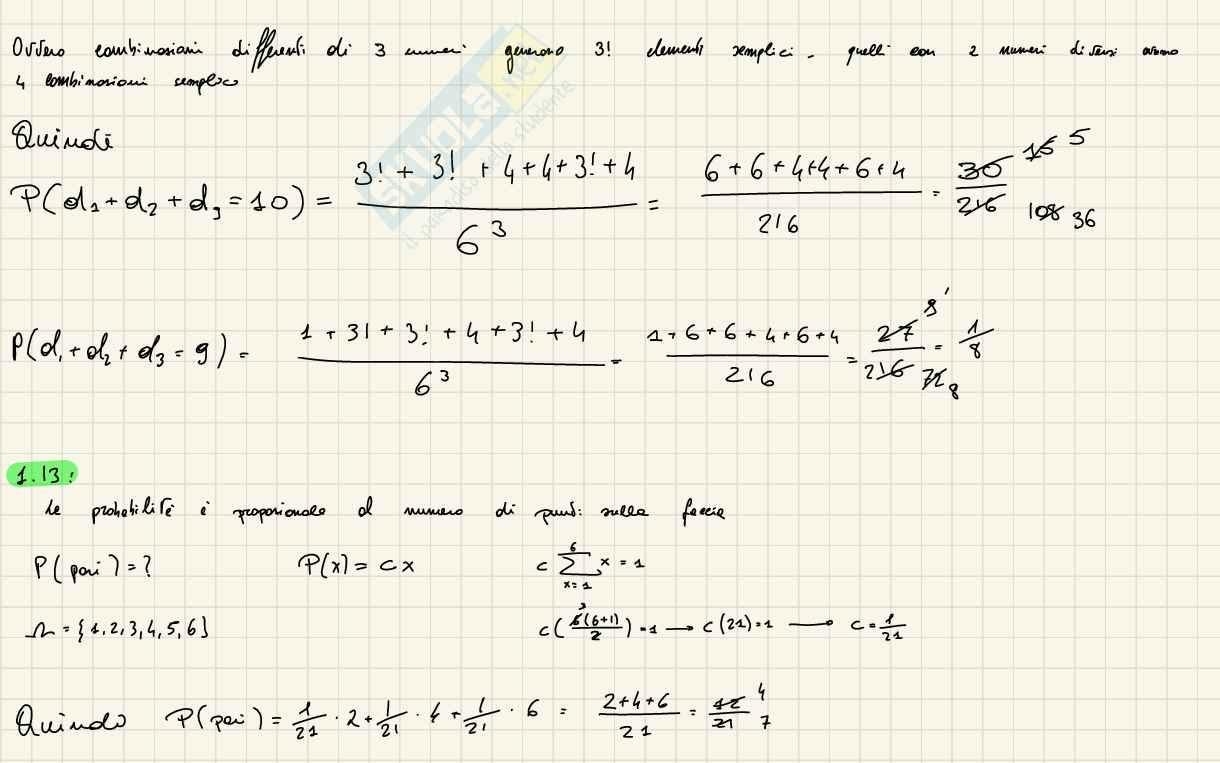 Ovvero combinazioni differenti di 3 numeri generano 3! elementi semplici - quelli con 2 numeri diversi avranno
4 combinazioni semplici
Quindi
P(d₁+d₂+d₃=10) = (3! + 3! + 4+4+3!+4)/6³ = (6+6+4+4+6+4)/216 = 30/216 15 5 108 36
P(d₁+d₂+d₃=9) = (1+3!+3!+4+3!+4)/6³ = (1+6+6+4+6+4)/216 = 27/216 9 1 72 8 = 1/8
1.13:
La probabilità è proporzionale al numero di punti sulla faccia
P(pari)=? P(x)= cx c ∑_{x=1}^{6} x = 1
Ω={1,2,3,4,5,6} c(6(6+1)/2)=1 → c(21)=1 → c=1/21
Quindi P(pari)= 1/21 · 2 + 1/21 · 4 + 1/21 · 6 = (2+4+6)/21 = 12/21 4 7
SKUOLA.net
il paradiso dello studente